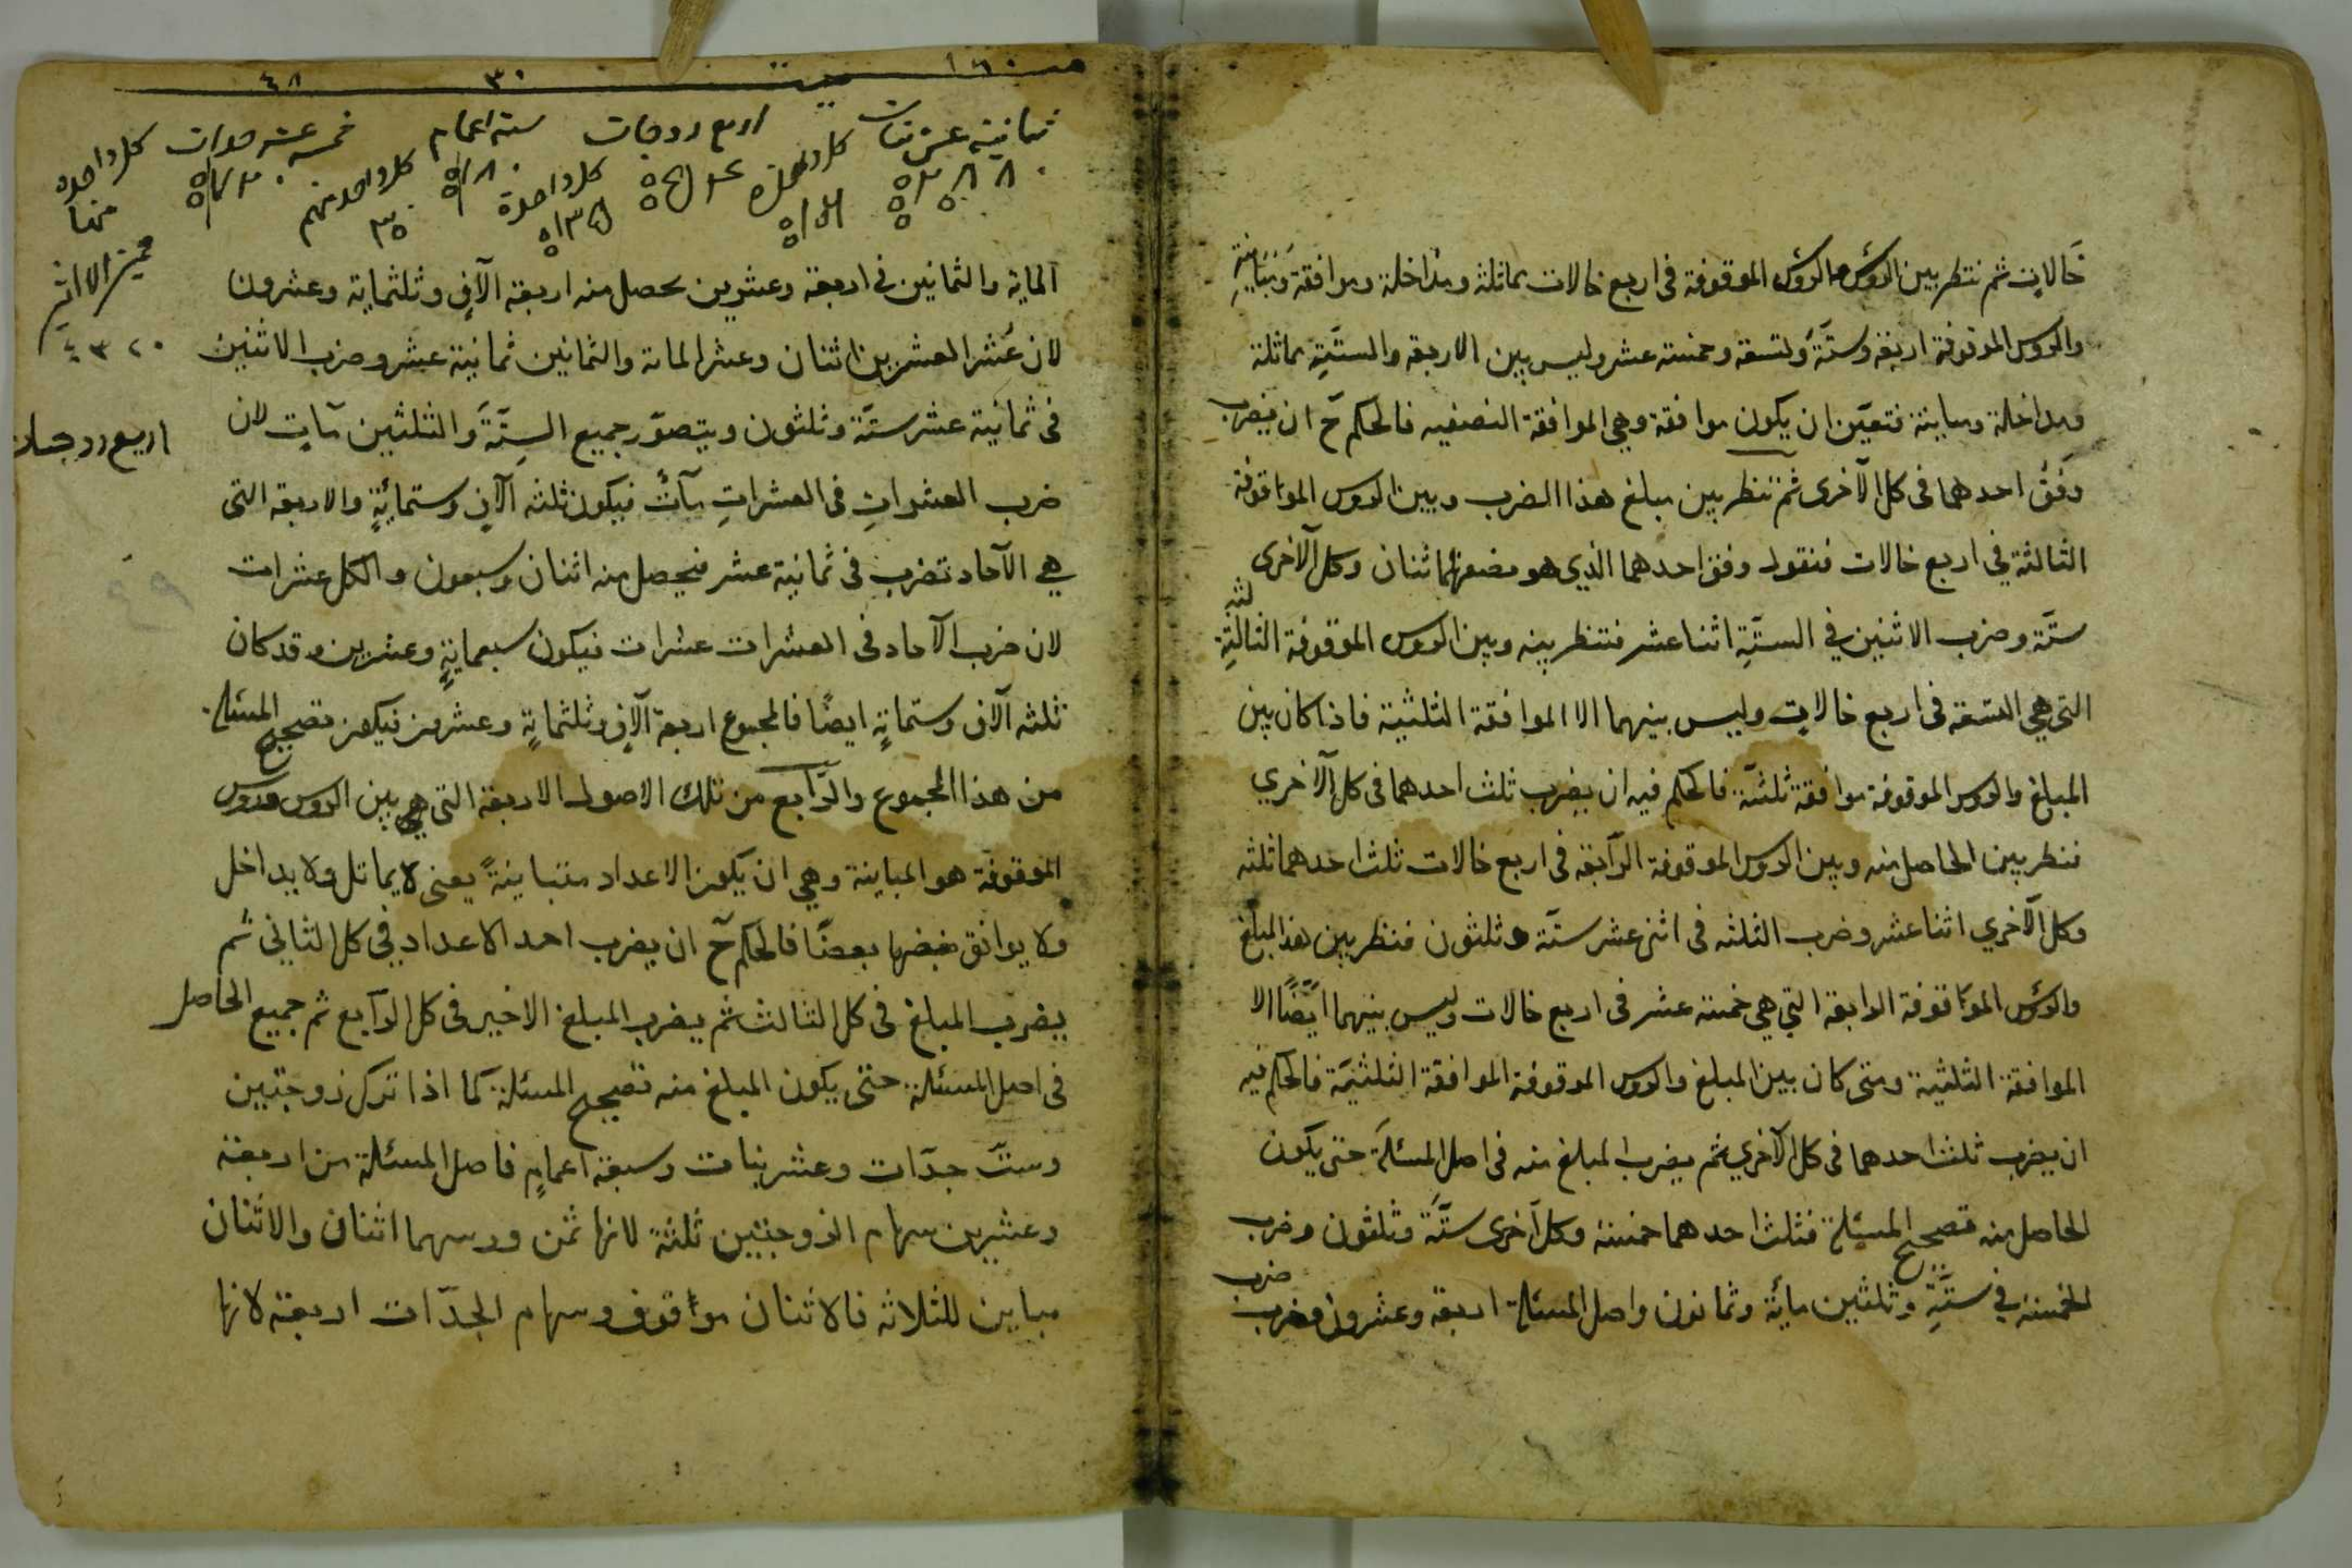 حالات ثم تنظر بين الرؤس والرؤس الموقوفة فى اربع حالات مماثلة ومداخلة وموافقة ومباينة
والرؤس الموقوفة اربعة وستة وتسعة وخمسة عشر وليس بين الاربعة والستة مماثلة
ومداخلة ومباينة فتعين ان يكون موافقة وهي الموافقة النصفيه فالحكم ح ان يضرب
وفق احدهما فى كل الآخرى ثم تنظر بين مبلغ هذا الضرب وبين الرؤس الموقوفة
الثالثة في اربع حالات فنقول وفق احدهما الذي هو نصفهما اثنان وكل الآخرى
ستة وضرب الاثنين في الستة اثنا عشر فتنظر بينه وبين الرؤس الموقوفة الثالثة
التي هي التسعة فى اربع حالات وليس بينهما الا الموافقة الثلثية فاذا كان بين
المبلغ والرؤس الموقوفة موافقة ثلثية فالحكم فيه ان يضرب ثلث احدهما فى كل الآخري
فتنظر بين الحاصل منه وبين الرؤس الموقوفة الرابعة فى اربع حالات ثلث احدهما ثلثه
وكل الآخري اثنا عشر وضرب الثلثه فى اثنى عشر ستة وثلثون فتنظر بين هذا المبلغ
والرؤس الموقوفة الرابعة التي هي خمسة عشر فى اربع حالات وليس بينهما ايضًا الا
الموافقة الثلثية ومتى كان بين المبلغ والرؤس الموقوفة الموافقة الثلثية فالحكم فيه
ان يضرب ثلث احدهما فى كل الآخري ثم يضرب المبلغ منه فى اصل المسئلة حتى يكون
الحاصل منه تصحيح المسئلة فثلث احدهما خمسة وكل آخرى ستة وثلثون وضرب
الخمسة في ستة وثلثين مائة وثمانون واصل المسئلة اربعة وعشرون وضرب
ميت ٣٠ ٤٨
ثمانية عشر بنات اربع زوجات ستة اعمام خمسة عشر جدات
كل واحدة كل واحد منهم كل واحدة منها
٤٣٢٠
اربع زوجات
الماية والثمانين فى اربعة وعشرين يحصل منه اربعة الآف وثلثماية وعشرون
لان عُشر العشرين اثنان وعشر الماة والثمانين ثمانية عشر وضرب الاثنين
فى ثمانية عشر ستة وثلثون ويتصور جميع الستة والثلثين مآت لان
ضرب العشرات فى العشرات مآت فيكون ثلثه آلاف وستمائة والاربعة التى
هي الآحاد تضرب فى ثمانية عشر فيحصل منه اثنان وسبعون والكل عشرات
لان ضرب الآحاد فى العشرات عشرات فيكون سبعماية وعشرين وقد كان
ثلثه آلاف وستماية ايضًا فالمجموع اربعة آلاف وثلثماية وعشرون فيكون تصحيح المسئلة
من هذا المجموع والرابع من تلك الاصول الاربعة التي هي بين الرؤس ورؤس
الموقوفة هو المباينة وهي ان يكون الاعداد متباينةً يعنى لا يماثل ولا يداخل
ولا يوافق بعضها بعضًا فالحكم ح ان يضرب احد الاعداد في كل الثاني ثم
يضرب المبلغ فى كل الثالث ثم يضرب المبلغ الاخير فى كل الرابع ثم جميع الحاصل
فى اصل المسئلة حتى يكون المبلغ منه تصحيح المسئلة كما اذا ترك زوجتين
وست جدّات وعشر بنات وسبعة اعمام فاصل المسئلة من اربعة
وعشرين سهام الزوجتين ثلثة لانها ثمن ورسهما اثنان والاثنان
مباين للثلاثه فالاثنان موقوف وسهام الجدّات اربعة لانها